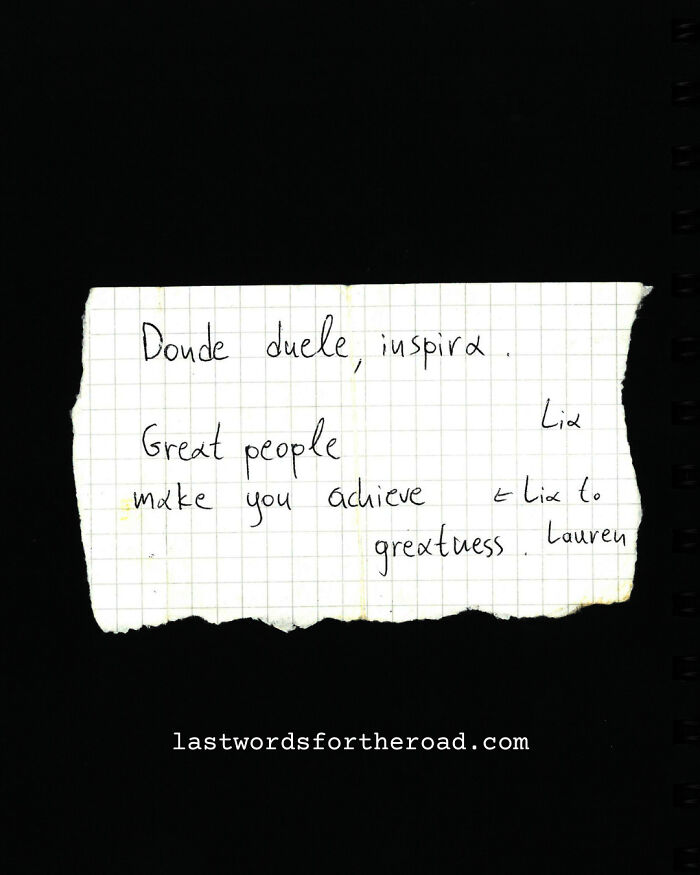 Donde duele, inspira.
Lia
Great people
make you achieve ← Lia to
greatness. Lauren
lastwordsfortheroad.com